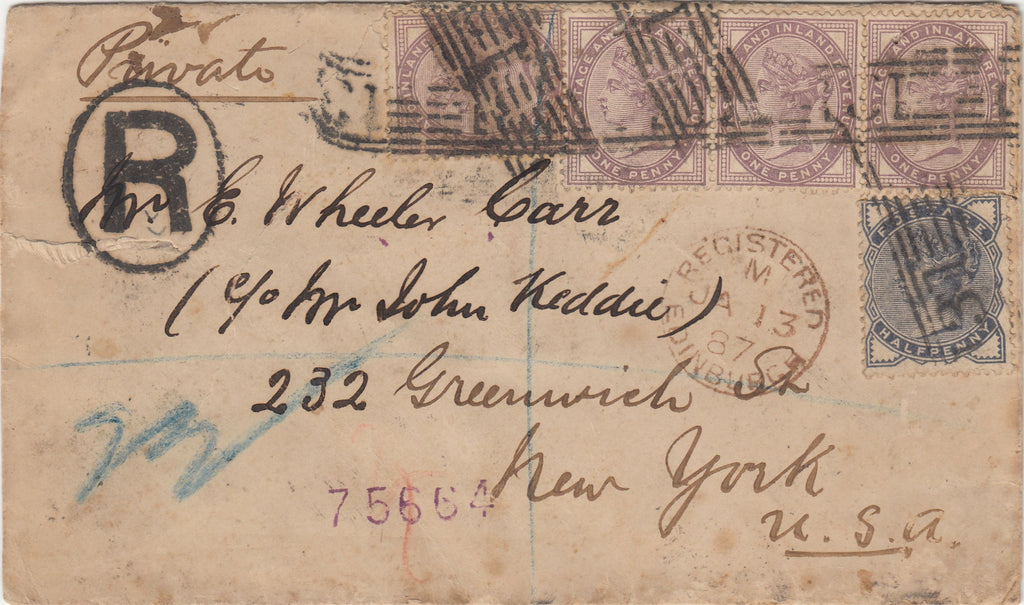 Private
R
Mr E. Wheeler Carr
(c/o Mr John Keddie)
232 Greenwich St
New York
U.S.A.
75664
REGISTERED
M
JA 13
87
EDINBURGH
POSTAGE AND INLAND REVENUE
ONE PENNY
POSTAGE AND INLAND REVENUE
ONE PENNY
POSTAGE AND INLAND REVENUE
ONE PENNY
HALFPENNY